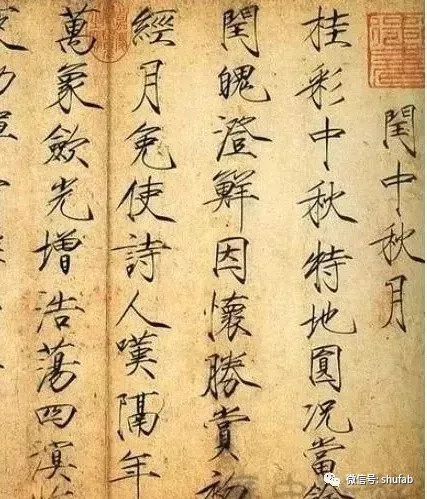 閏中秋月
桂彩中秋特地圓況當
閏魄澄鮮因懷勝賞初
經月免使詩人嘆隔年
萬象歛光增浩蕩四溟
微信号: shufab